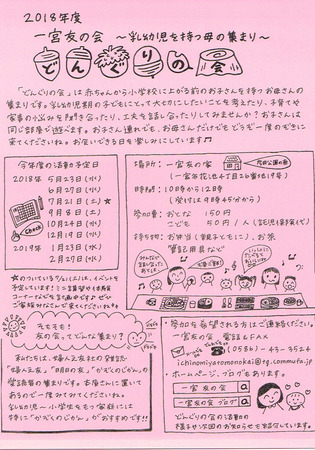 2018年度
一宮友の会 〜乳幼児を持つ母の集まり〜
どんぐりの会
「どんぐりの会」は赤ちゃんから小学校に上がる前のお子さんを持つお母さんの
集まりです。乳幼児期の子どもにとって大切にしたいことを考えたり、子育てや
家事の悩みを聞き合ったり、工夫を話し合ったりしてみませんか？お子さんは
同じ部屋で遊べます。お子さん連れでも、お母さんだけでもどうぞ一度のぞきに
来てくださいね。お会いできる日を楽しみにしています♫
今年度の活動の予定日
2018年 5月23日(水)
6月27日(水)
7月21日(土)★
9月8日(土)
10月24日(水)
12月
2019年 1月23日(水)
2月27日(水)
Check
★のついている7/21(土)は、イベントを
予定しています！
ぜひ
ご家族みなさんで来てくださいね。
場所：一宮友の家
(一宮市花池4丁目26番地19号)
時間：10時から12時
(受付は9時45分から)
参加費：おとな 150円
こども 50円/1人(託児・保険代)
持ち物：お弁当(親子ともに)、お茶
筆記用具など
そもそも！
友の会って、どんな集まり？
私たちは、婦人之友社の発行誌
「婦人之友」「明日の友」「かぞくのじかん」の
愛読者の集まりです。本屋さんに置いて
あるので一度みてみてくださいね。
乳幼児〜小学生をもつ家庭には
特に「かぞくのじかん」がおすすめです!!
参加を希望される方はご連絡ください。
一宮友の会 電話&FAX
(0586)-45-3524
ichinomiyatomonokai@rg.commufa.jp
・ホームページ、ブログもあります。
一宮友の会
一宮友の会ブログ
どんぐりの会の活動の
様子や次回のお知らせも紹介しています。